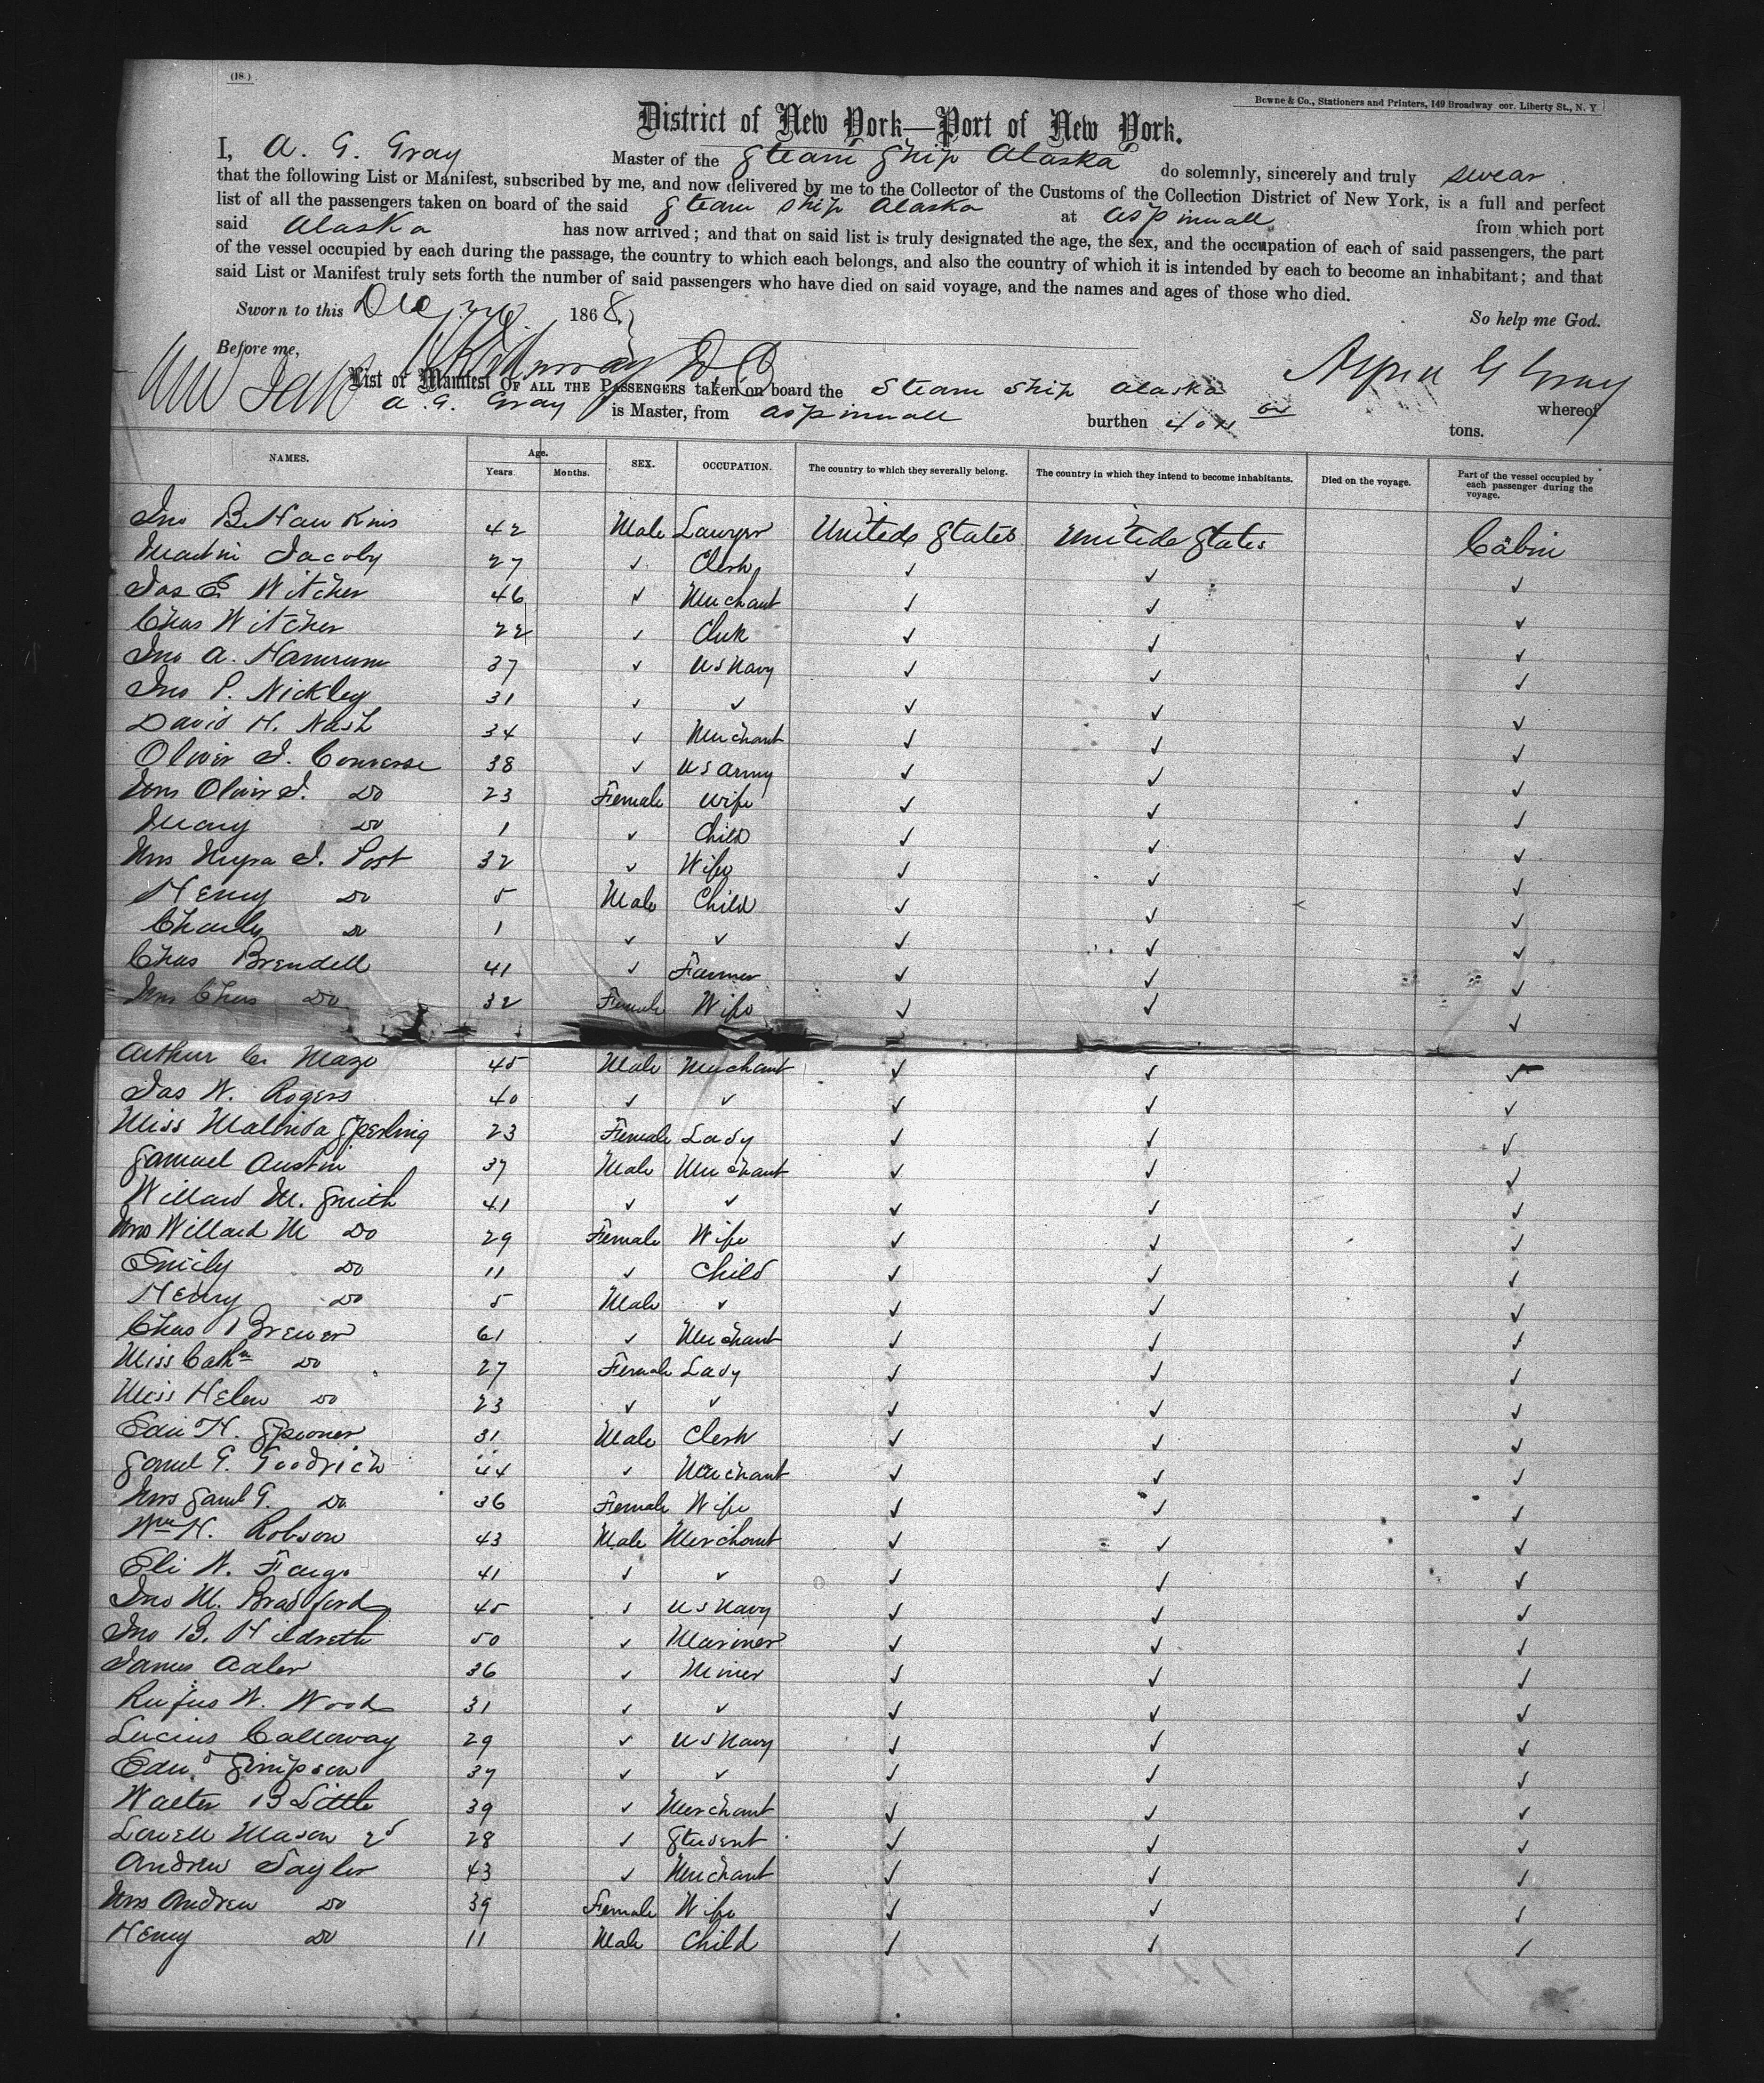 (18.)
Bowne & Co., Stationers and Printers, 149 Broadway cor. Liberty St., N. Y
District of New York—Port of New York.
I, A. G. Gray Master of the Steam Ship Alaska do solemnly, sincerely and truly swear
that the following List or Manifest, subscribed by me, and now delivered by me to the Collector of the Customs of the Collection District of New York, is a full and perfect
list of all the passengers taken on board of the said Steam Ship Alaska at Aspinwall from which port
said Alaska has now arrived; and that on said list is truly designated the age, the sex, and the occupation of each of said passengers, the part
of the vessel occupied by each during the passage, the country to which each belongs, and also the country of which it is intended by each to become an inhabitant; and that
said List or Manifest truly sets forth the number of said passengers who have died on said voyage, and the names and ages of those who died.
Sworn to this Dec 1868. So help me God.
Before me,
List or Manifest OF ALL THE PASSENGERS taken on board the Steam Ship Alaska whereof
A. G. Gray is Master, from Aspinwall burthen tons.
NAMES. Age. Years. Months. SEX. OCCUPATION. The country to which they severally belong. The country in which they intend to become inhabitants. Died on the voyage. Part of the vessel occupied by each passenger during the voyage.
Jno B. Hawkins 42 Male Lawyer United States United States Cabin
Martin Jacoby 27 ✓ Clerk ✓ ✓ ✓
Jas E. Witcher 46 ✓ Merchant ✓ ✓ ✓
Chas Witcher 22 ✓ Clerk ✓ ✓ ✓
Jno A. 37 ✓ U S Navy ✓ ✓ ✓
Jno P. Nickley 31 ✓ ✓ ✓ ✓ ✓
David H. Nash 34 ✓ Merchant ✓ ✓ ✓
Oliver J. Converse 38 ✓ U S Army ✓ ✓ ✓
Mrs Oliver J. Do 23 Female Wife ✓ ✓ ✓
Mary Do 1 ✓ Child ✓ ✓ ✓
Mrs J. Post 32 ✓ Wife ✓ ✓ ✓
Henry Do 5 Male Child ✓ ✓ ✓
Charly Do 1 ✓ ✓ ✓ ✓ ✓
Chas Brendell 41 ✓ Farmer ✓ ✓ ✓
Mrs Chas Do 32 Female Wife ✓ ✓ ✓
Arthur C. Mazo 45 Male Merchant ✓ ✓ ✓
Jas W. Rogers 40 ✓ ✓ ✓ ✓ ✓
Miss Malinda Sperling 23 Female Lady ✓ ✓ ✓
Samuel Austin 37 Male Merchant ✓ ✓ ✓
Willard M. Smith 41 ✓ ✓ ✓ ✓ ✓
Mrs Willard M Do 29 Female Wife ✓ ✓ ✓
Emily Do 11 ✓ Child ✓ ✓ ✓
Henry Do 5 Male ✓ ✓ ✓ ✓
Chas Brewer 61 ✓ Merchant ✓ ✓ ✓
Miss Cath Do 27 Female Lady ✓ ✓ ✓
Miss Helen Do 23 ✓ ✓ ✓ ✓ ✓
Edw H. Spooner 31 Male Clerk ✓ ✓ ✓
Saml G. Goodrich 44 ✓ Merchant ✓ ✓ ✓
Mrs Saml G. Do 36 Female Wife ✓ ✓ ✓
Wm H. Robson 43 Male Merchant ✓ ✓ ✓
Eli W. Fargo 41 ✓ ✓ ✓ ✓ ✓
Jno M. Bradford 45 ✓ U S Navy ✓ ✓ ✓
Jno B. Hildreth 50 ✓ Mariner ✓ ✓ ✓
James Adler 36 ✓ Miner ✓ ✓ ✓
Rufus W. Wood 31 ✓ ✓ ✓ ✓ ✓
Lucius Calloway 29 ✓ U S Navy ✓ ✓ ✓
Edwd Simpson 37 ✓ ✓ ✓ ✓ ✓
Walter B Little 39 ✓ Merchant ✓ ✓ ✓
Lowell Mason 2d 28 ✓ Student ✓ ✓ ✓
Andrew Taylor 43 ✓ Merchant ✓ ✓ ✓
Mrs Andrew Do 39 Female Wife ✓ ✓ ✓
Henry Do 11 Male Child ✓ ✓ ✓